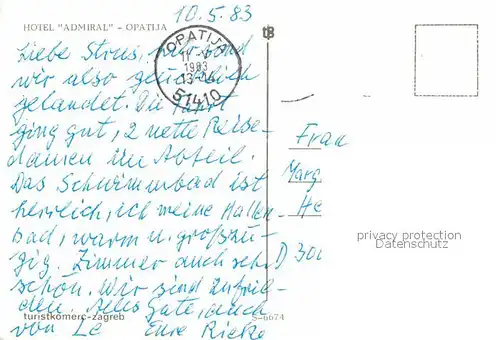 10.5.83
HOTEL "ADMIRAL" – OPATIJA
OPATIJA
1983
51410
Liebe
wir also glücklich
gelandet. Die Fahrt
ging gut, 2 nette Reise-
damen im Abteil.
Das Schwimmbad ist
herrlich, ich meine Hallen-
bad, warm u. großzü-
gig. Zimmer auch sehr
schön. Wir sind zufrie-
den. Alles Gute, auch
von Eure
Frau
Marg
He
D 300
privacy protection
Datenschutz
turistkomerc-zagreb
S-6674